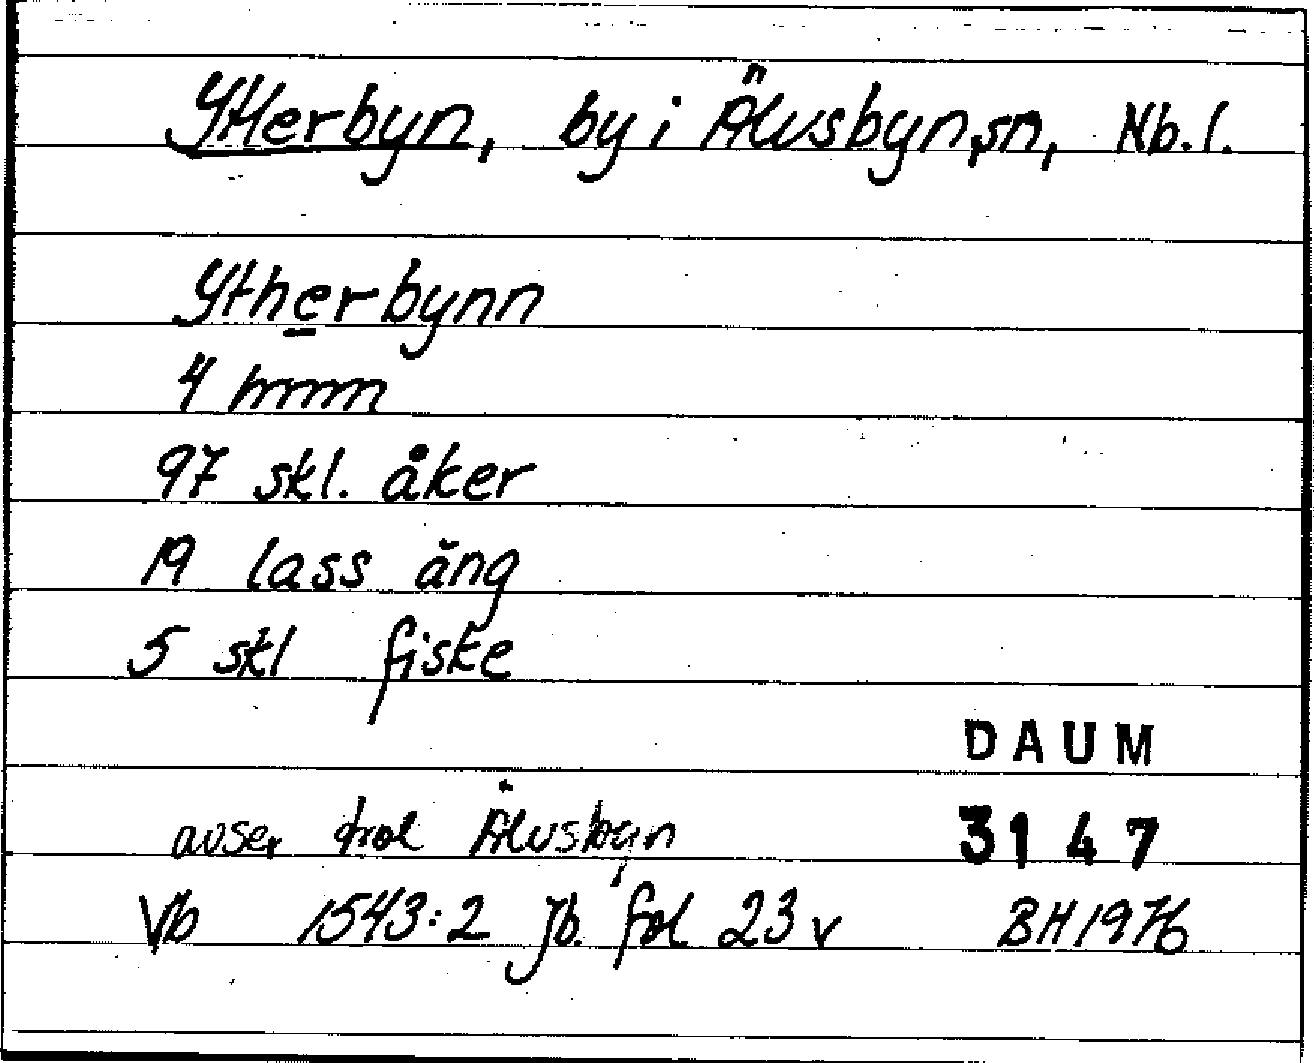 Ytterbyn, by i Älvsbyn, sn, Nb. l.
Ytherbynn
4 hmm
97 skl. åker
19 lass äng
5 skl fiske
DAUM
avser trol Älvsbyn
3147
Vb 1543:2 Jb. fol 23 v BH 1976